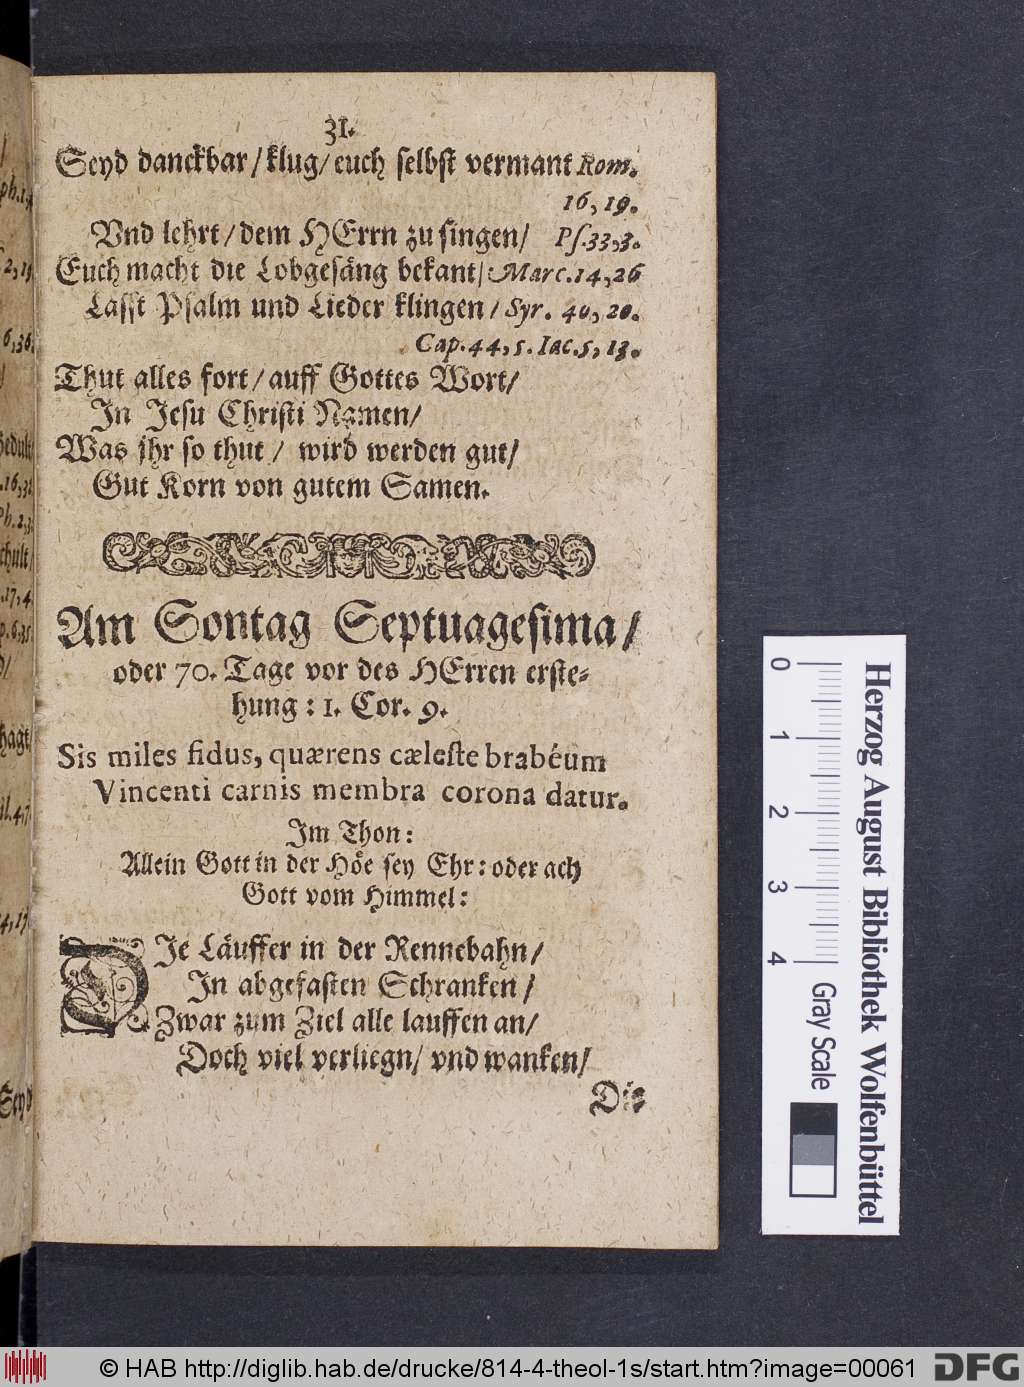 31.
Seyd danckbar / klug / euch selbst vermant Rom.
16, 19.
Vnd lehrt / dem HErrn zu singen / Ps. 33, 3.
Euch macht die Lobgesäng bekant / Marc. 14, 26
Lasst Psalm und Lieder klingen / Syr. 40, 20.
Cap. 44, 5. Iac. 5, 13.
Thut alles fort / auff Gottes Wort /
In Jesu Christi Namen /
Was jhr so thut / wird werden gut /
Gut Korn von gutem Samen.
Am Sontag Septuagesima /
oder 70. Tage vor des HErren erste-
hung : 1. Cor. 9.
Sis miles fidus, quærens cæleste brabéum
Vincenti carnis membra corona datur.
Im Thon:
Allein Gott in der Höe sey Ehr: oder ach
Gott vom Himmel:
DIe Läuffer in der Rennebahn /
In abgefasten Schranken /
Zwar zum Ziel alle lauffen an /
Doch viel verliegn / vnd wanken /
Die
ph. 1,
2, 19
6, 36.
Gedult
. 16, 33
Ph. 2, 3.
chult /
. 17, 4
p. 6, 35
hagt /
il. 4, 7.
4, 17
Seyd
0 1 2 3 4
Gray Scale
Herzog August Bibliothek Wolfenbüttel
© HAB http://diglib.hab.de/drucke/814-4-theol-1s/start.htm?image=00061
DFG